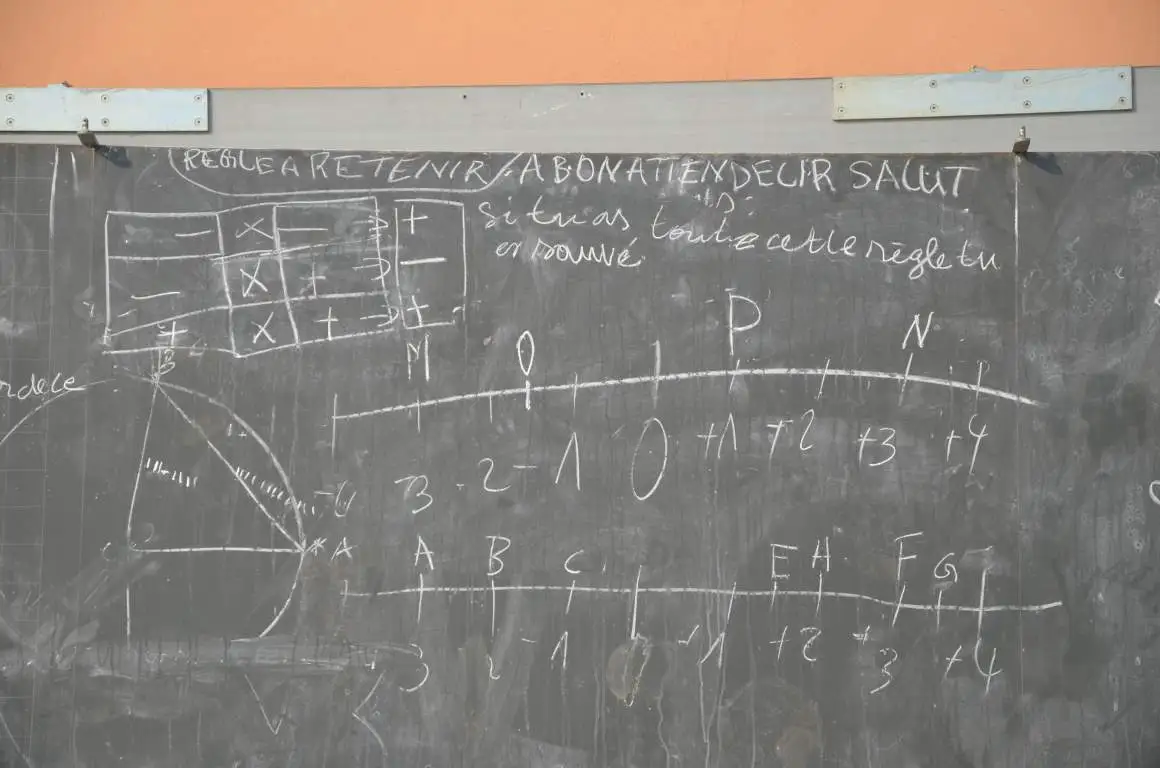 REGLE A RETENIR / : A BON ATTENDEUR SALUT
Si tu as toute cette règle tu
− X − → +
− X + → −
+ X + → +
B
M O I P N
-3 -2 -1 0 +1 +2 +3 +4
A
A B C E H F G
3 2 -1 +1 +2 +3 +4